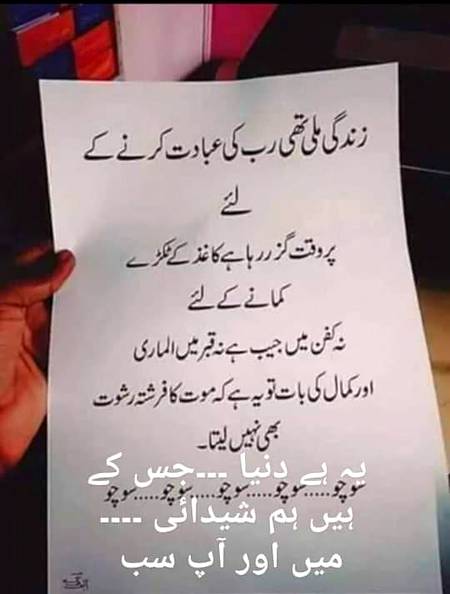 زندگی ملی تھی رب کی عبادت کرنے کے
لئے
پر وقت گزر رہا ہے کاغذ کے ٹکڑے
کمانے کے لئے
نہ کفن میں جیب ہے نہ قبر میں الماری
اور کمال کی بات تو یہ ہے کہ موت کا فرشتہ رشوت
بھی نہیں لیتا۔
یہ ہے دنیا ---جس کے
سوچو.....سوچو.....سوچو.....سوچو.....سوچو
ہیں ہم شیدائی ----
میں اور آپ سب